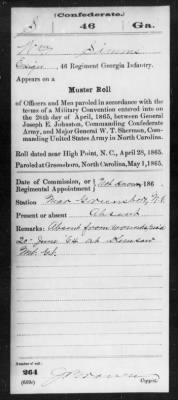 (Confederate.)
S 46 Ga.
Wm Simms
Ensign, 46 Regiment Georgia Infantry.
Appears on a
Muster Roll
of Officers and Men paroled in accordance with the
terms of a Military Convention entered into on
the 26th day of April, 1865, between General
Joseph E. Johnston, Commanding Confederate
Army, and Major General W. T. Sherman, Com-
manding United States Army in North Carolina.
Roll dated near High Point, N. C., April 28, 1865.
Paroled at Greensboro, North Carolina, May 1, 1865.
Date of Commission, or
Regimental Appointment } Not known, 186 .
Station Near Greensboro, N.C.
Present or absent Absent
Remarks: Absent from wounds rec'd
20 June '64 at Kenesaw
Mt. Ga.
Number of roll:
264
(669c) Copyist.